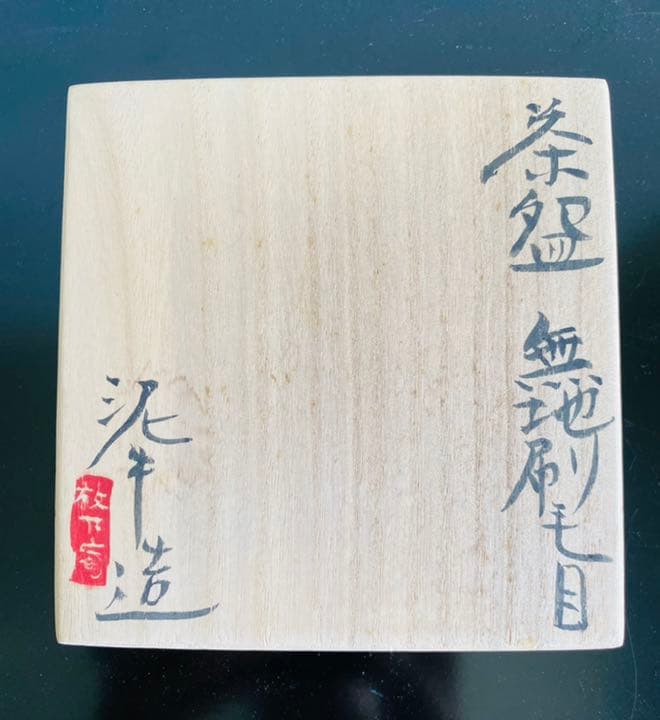 茶盌 無地刷毛目
泥牛造
放下庵